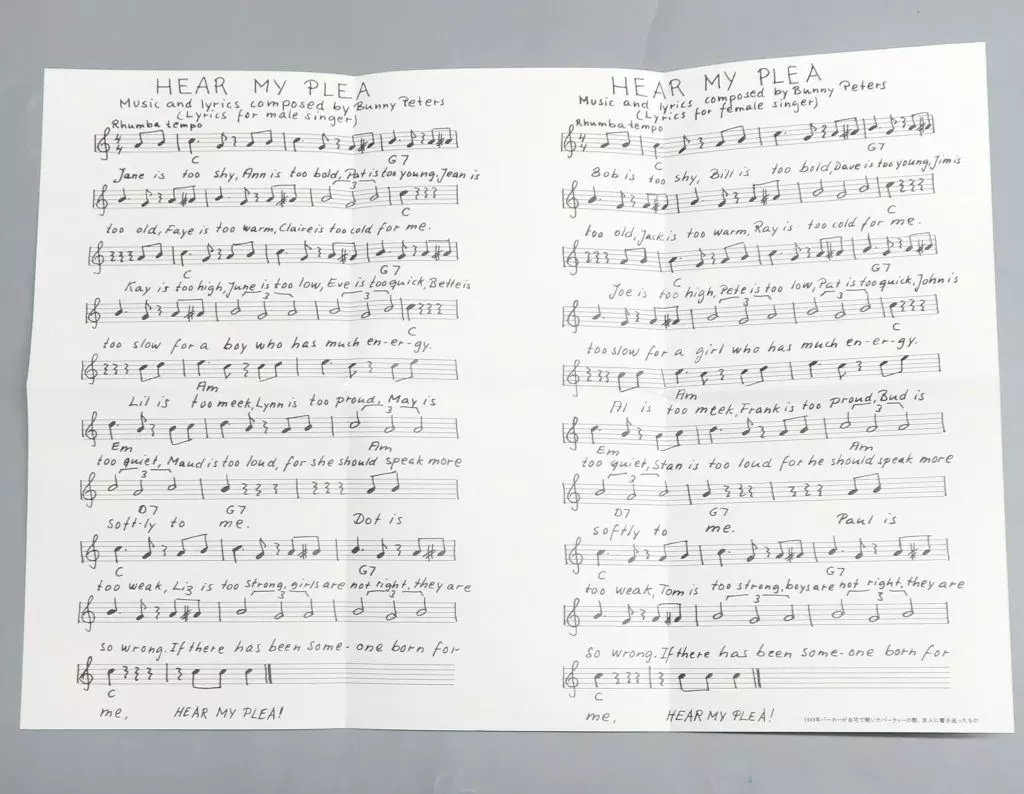 HEAR MY PLEA
Music and lyrics composed by Bunny Peters
(Lyrics for male singer)
Rhumba tempo
C G7
Jane is too shy, Ann is too bold, Pat is too young, Jean is
3
C
too old, Faye is too warm, Claire is too cold for me.
C G7
Kay is too high, June is too low, Eve is too quick, Bette is
3 3
C
too slow for a boy who has much en-er-gy.
Am
Lil is too meek, Lynn is too proud, May is
3
Em Am
too quiet, Maud is too loud, for she should speak more
3
D7 G7
soft-ly to me. Dot is
C G7
too weak, Liz is too strong, girls are not right, they are
3 3
so wrong. If there has been some-one born for
C
me, HEAR MY PLEA!
HEAR MY PLEA
Music and lyrics composed by Bunny Peters
(Lyrics for female singer)
Rhumba tempo
C G7
Bob is too shy, Bill is too bold, Dave is too young, Jim is
C
too old, Jack is too warm, Ray is too cold for me.
C G7
Joe is too high, Pete is too low, Pat is too quick, John is
3 3
C
too slow for a girl who has much en-er-gy.
Am
Al is too meek, Frank is too proud, Bud is
3
Em Am
too quiet, Stan is too loud for he should speak more
3
D7 G7
softly to me. Paul is
C G7
too weak, Tom is too strong, boys are not right, they are
3 3
so wrong. If there has been some-one born for
C
me, HEAR MY PLEA!